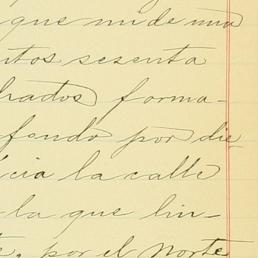 que mide una
ntos sesenta
drados forma-
fondo por die
cia la calle
la que lin-
por el norte